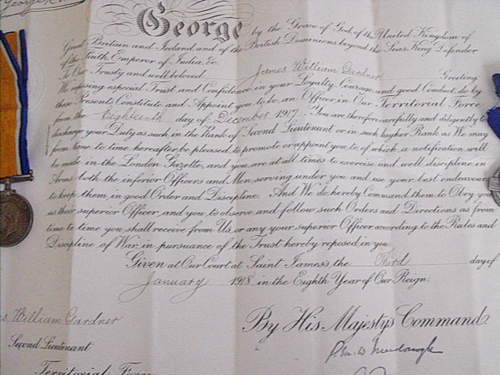 George by the Grace of God, of the United Kingdom of
Great Britain and Ireland, and of the British Dominions beyond the Seas, King, Defender
of the Faith, Emperor of India, &c.
To Our Trusty and well beloved James William Gardner Greeting
We reposing especial Trust and Confidence in your Loyalty, Courage, and good Conduct, do by
these Presents Constitute and Appoint you to be an Officer in Our Territorial Force
from the Eighteenth day of December 1917. You are therefore carefully and diligently to
discharge your Duty as such in the Rank of Second Lieutenant or in such higher Rank as We may
from time to time hereafter be pleased to promote or appoint you to, of which a notification will
be made in the London Gazette, and you are at all times to exercise and well discipline in
Arms both the inferior Officers and Men serving under you and use your best endeavours
to keep them in good Order and Discipline. And We do hereby Command them to Obey you
as their superior Officer, and you to observe and follow such Orders and Directions as from
time to time you shall receive from Us, or any your superior Officer, according to the Rules and
Discipline of War, in pursuance of the Trust hereby reposed in you.
Given at Our Court, at Saint James's, the third day of
January 1918 in the Eighth Year of Our Reign.
William Gardner
By His Majesty's Command
Second Lieutenant
Territorial Force